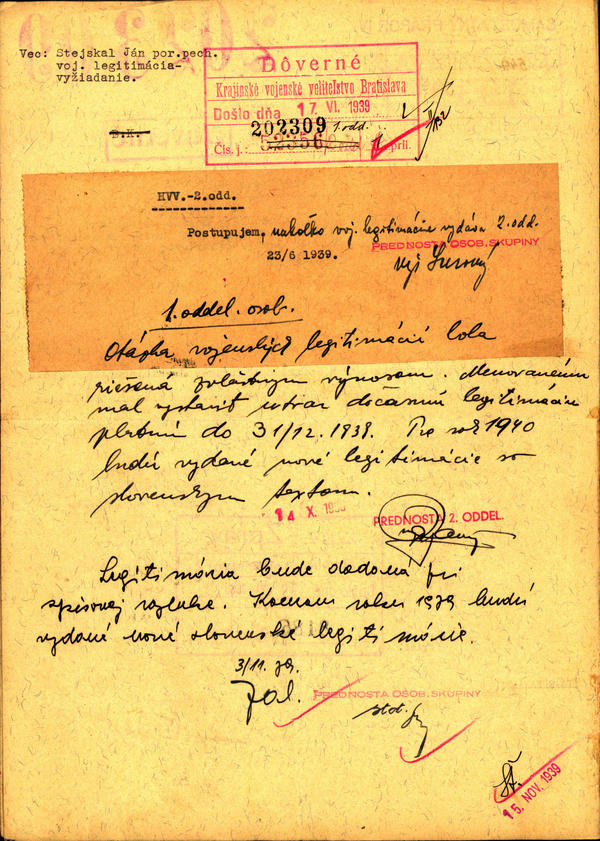 Vec: Stejskal Ján por.pech.
voj. legitimácia-
vyžiadanie.
D.K.
Dôverné
Krajinské vojenské veliteľstvo Bratislava
Došlo dňa 17 VI. 1939
202309 1.odd.
Čís. j.: 52356 príl.
HVV.-2.odd.
Postupujem, nakoľko voj. legitimácie vydáva 2. odd.
PREDNOSTA OSOB. SKUPINY
23/6 1939.
1. oddel. osob.
Otázka vojenských legitimácií bola
riešená zvláštnym výnosom. Menovanému
mal vystaviť útvar dočasnú legitimáciu
platnú do 31/12. 1939. Pre rok 1940
budú vydané nové legitimácie so
slovenským textom.
14 X. 1939
PREDNOSTA 2. ODDEL.
Legitimácia bude dodaná pri
spisovej rozluke. Koncom roku 1939 budú
vydané nové slovenské legitimácie.
3/11. 39.
PREDNOSTA OSOB. SKUPINY
stot.
Št.
15. NOV. 1939